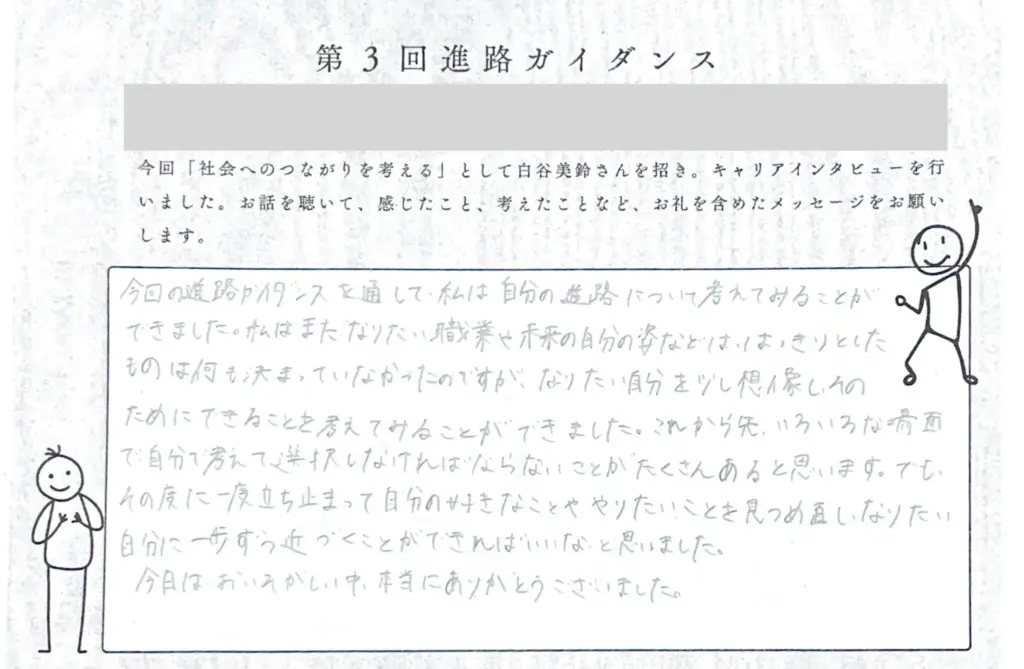 第3回進路ガイダンス
今回「社会へのつながりを考える」として白谷美鈴さんを招き。キャリアインタビューを行
いました。お話を聴いて、感じたこと、考えたことなど、お礼を含めたメッセージをお願い
します。
今回の進路ガイダンスを通して、私は自分の進路について考えてみることが
できました。私はまだなりたい職業や未来の自分の姿などは、はっきりとした
ものは何も決まっていなかったのですが、なりたい自分を少し想像し、その
ためにできることを考えてみることができました。これから先、いろいろな場面
で自分で考えて選択しなければならないことがたくさんあると思います。でも、
その度に一度立ち止まって自分の好きなことややりたいことを見つめ直し、なりたい
自分に一歩ずつ近づくことができればいいなと思いました。
今日はおいそがしい中、本当にありがとうございました。